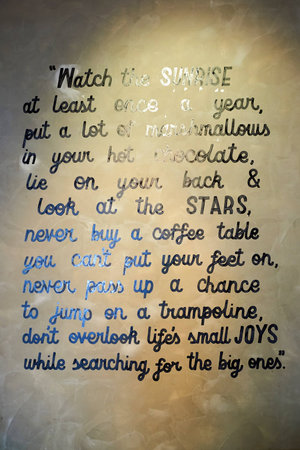 "Watch the SUNRISE
at least once a year,
put a lot of marshmallows
in your hot chocolate,
lie on your back &
look at the STARS,
never buy a coffee table
you can't put your feet on,
never pass up a chance
to jump on a trampoline,
don't overlook life's small JOYS
while searching for the big ones".